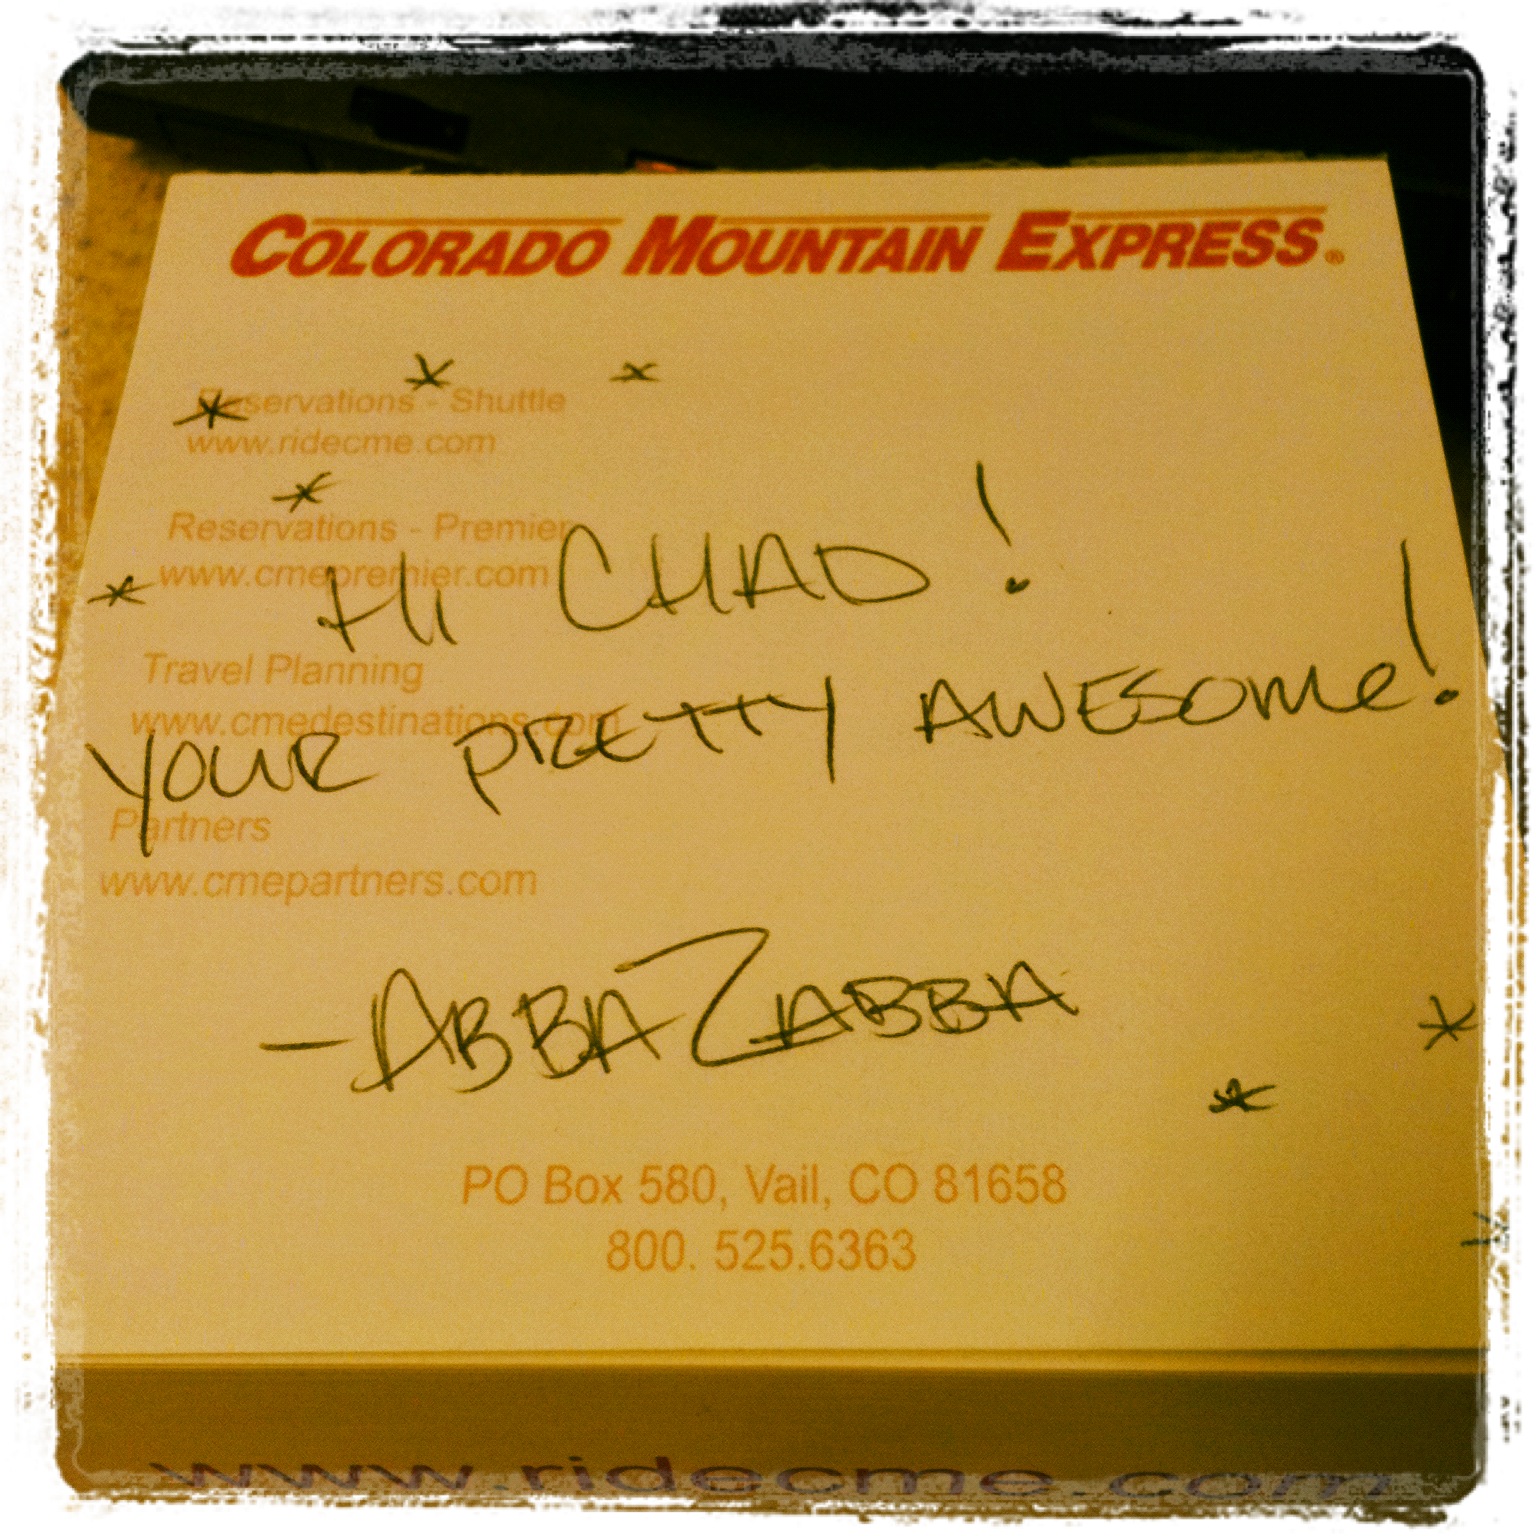 COLORADO MOUNTAIN EXPRESS®
Reservations - Shuttle
www.ridecme.com
Reservations - Premier
www.cmepremier.com
Hi CHAD!
Travel Planning
www.cmedestinations.com
YOUR PRETTY AWESOMe!
Partners
www.cmepartners.com
-ABBAZABBA
PO Box 580, Vail, CO 81658
800. 525.6363
www.ridecme.com